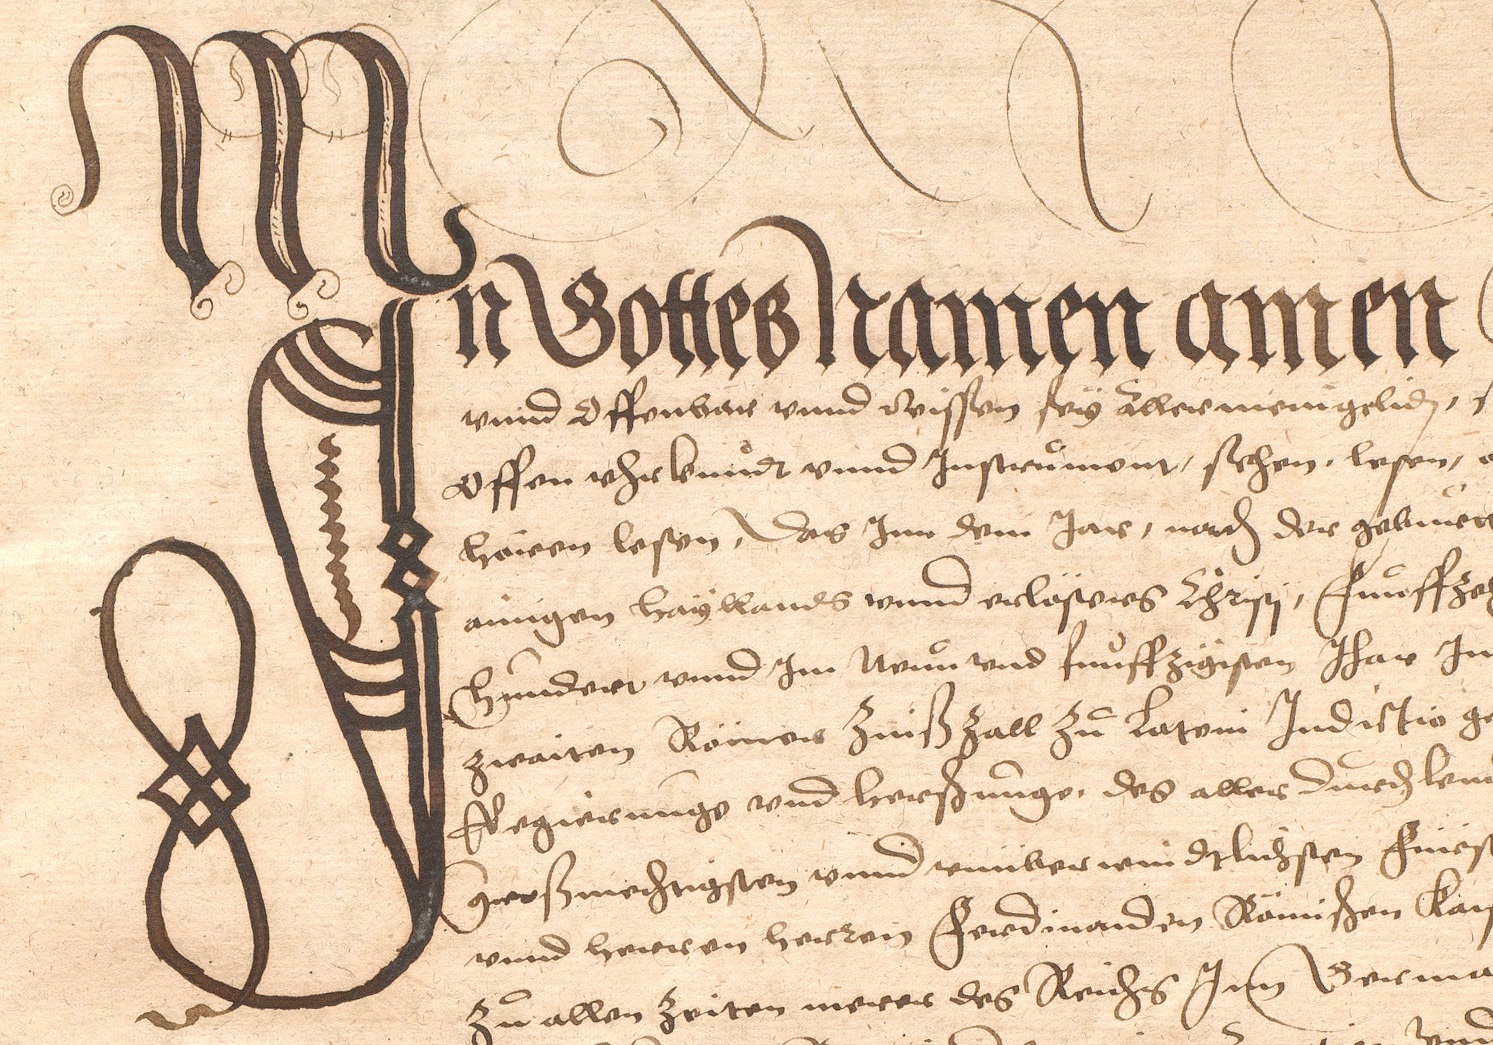 In Gottes Namen amen
vnnd Offenbar vnnd wissen seÿ Allermenigelich,
Offen vhrkundt vnnd Instrument, sehen, lesen,
hören lesen, Das Inn dem Jar, nach der gebuert
ainigen haÿllands vnnd erlösers Christj, Fünffzeh
hundert vnnd Im Neun vnd funffzigisten Jhar In
zwaiten Römer Zinßzall Zu Latein Indictio ge
Regierungs vnd herschunge, des aller Durchleu
Großmechtigsten vnnd vnüberwindtlichsten Fürst
vnnd herren herren Ferdinanden Römischen Kay
Zu allen Zeiten merer des Reichs Inn Germa